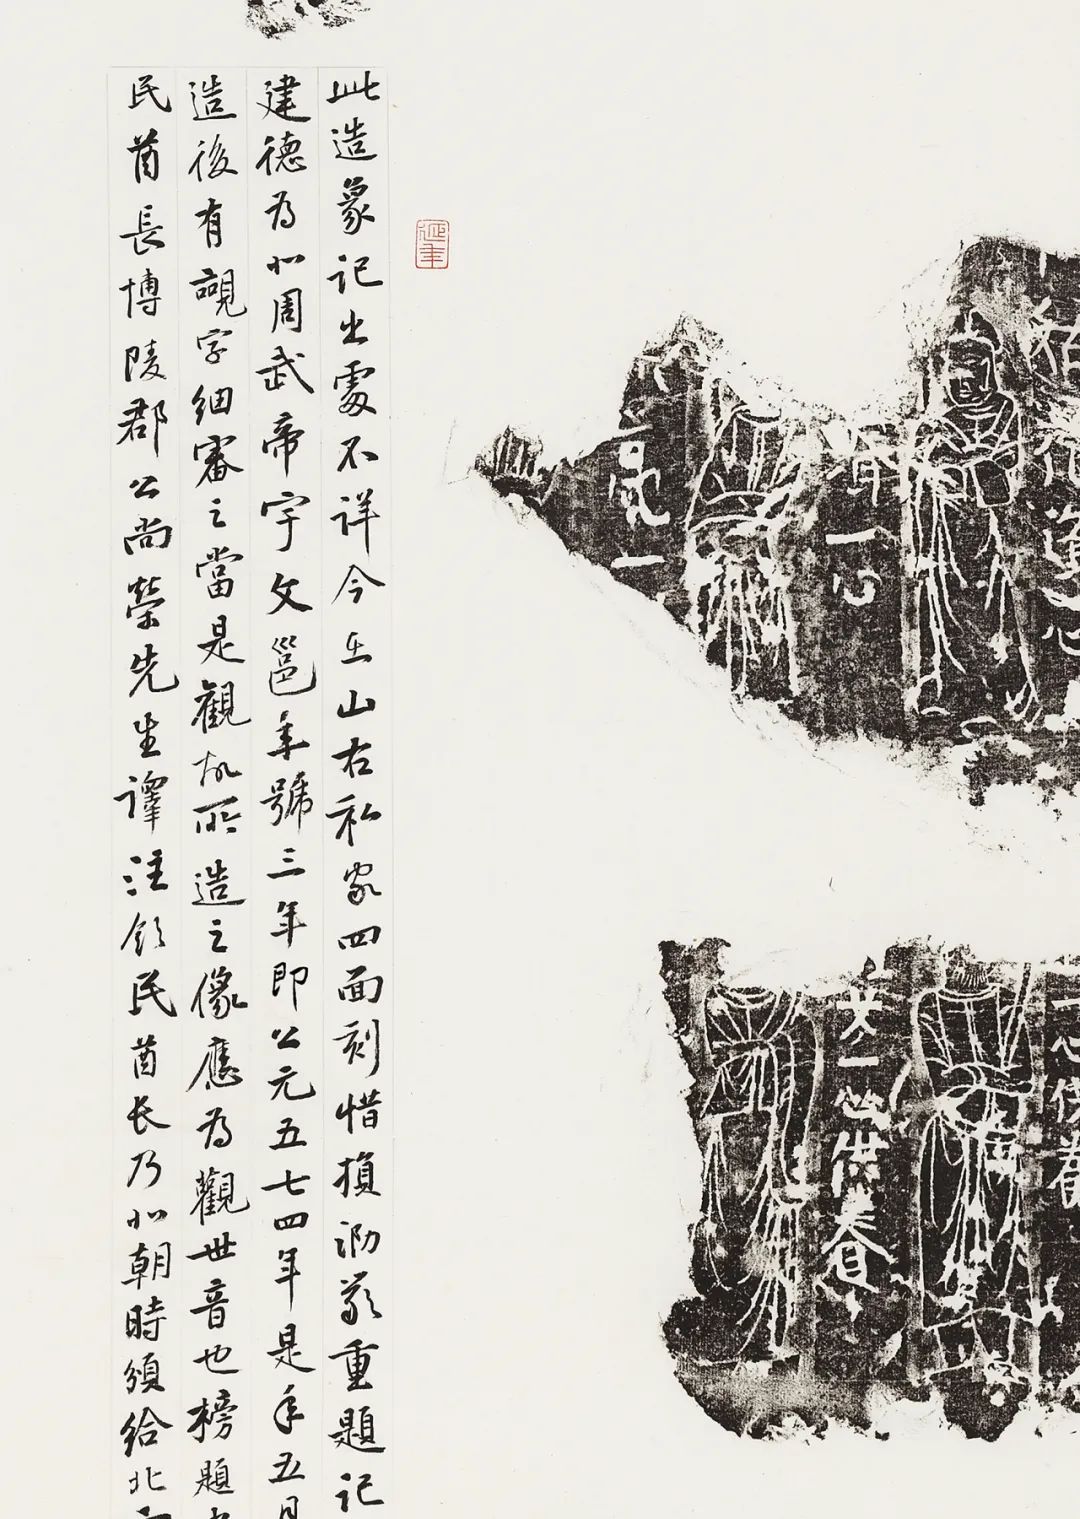 此造象记出處不详今在山右私家四面刻惜損泐甚重題记
建德为北周武帝宇文邕年號三年即公元五七四年是年五月
造後有覩字细審之當是觀故所造之像應为觀世音也榜題
民酋長博陵郡公尚榮先生譯注领民酋长乃北朝時頒给北
延年
一心
一心供養
一心供養